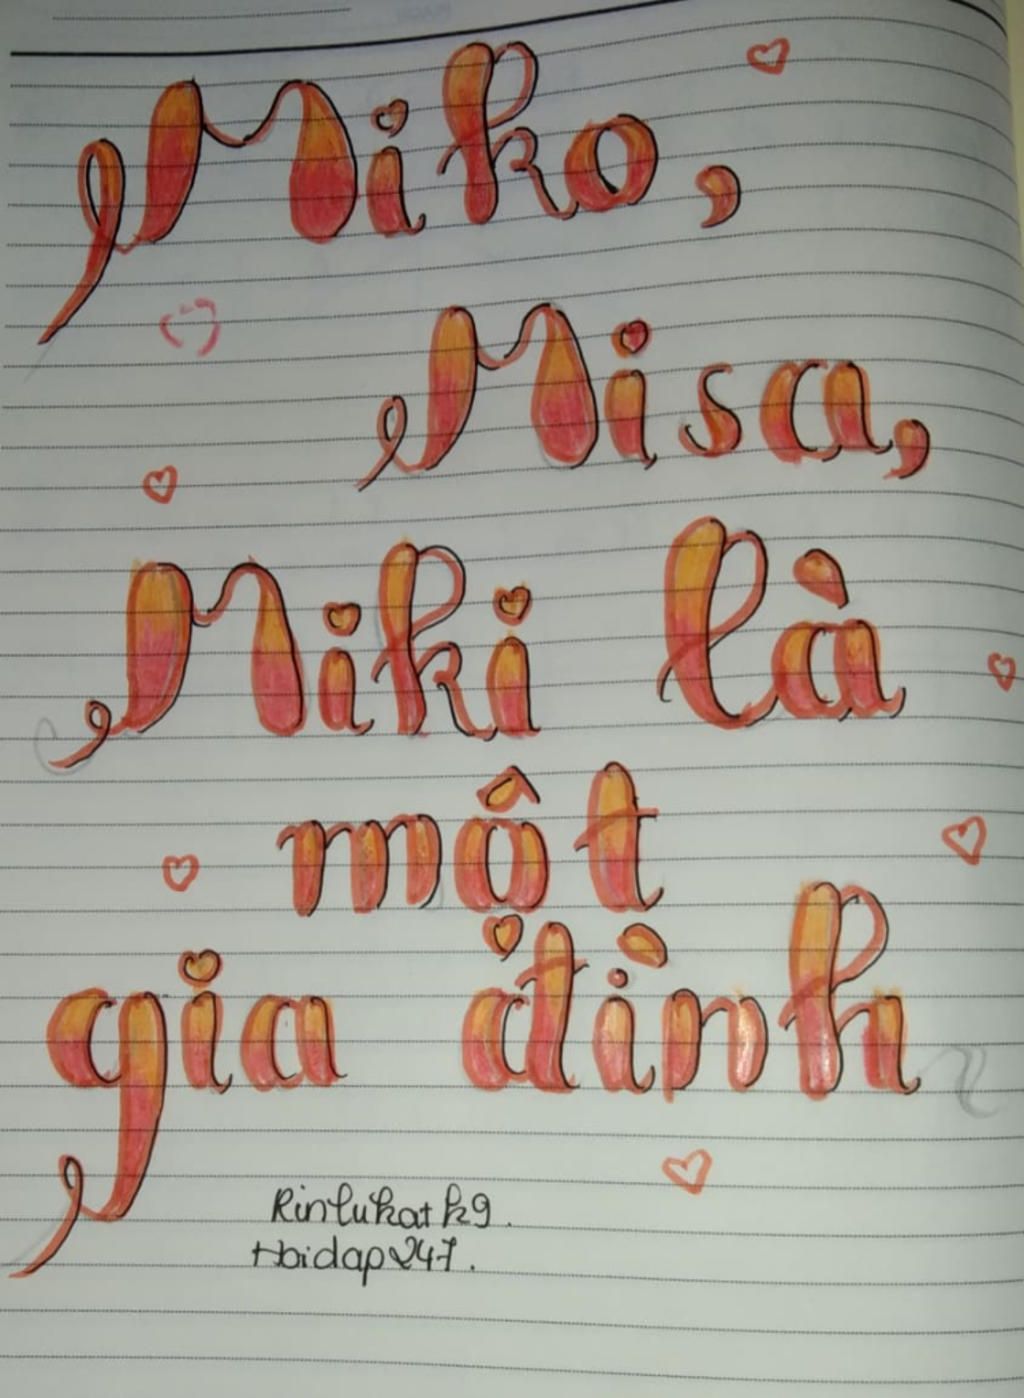 Miko,
Misa,
Miki là
một
gia đình
Rinlukatk9.
Hoidap247.